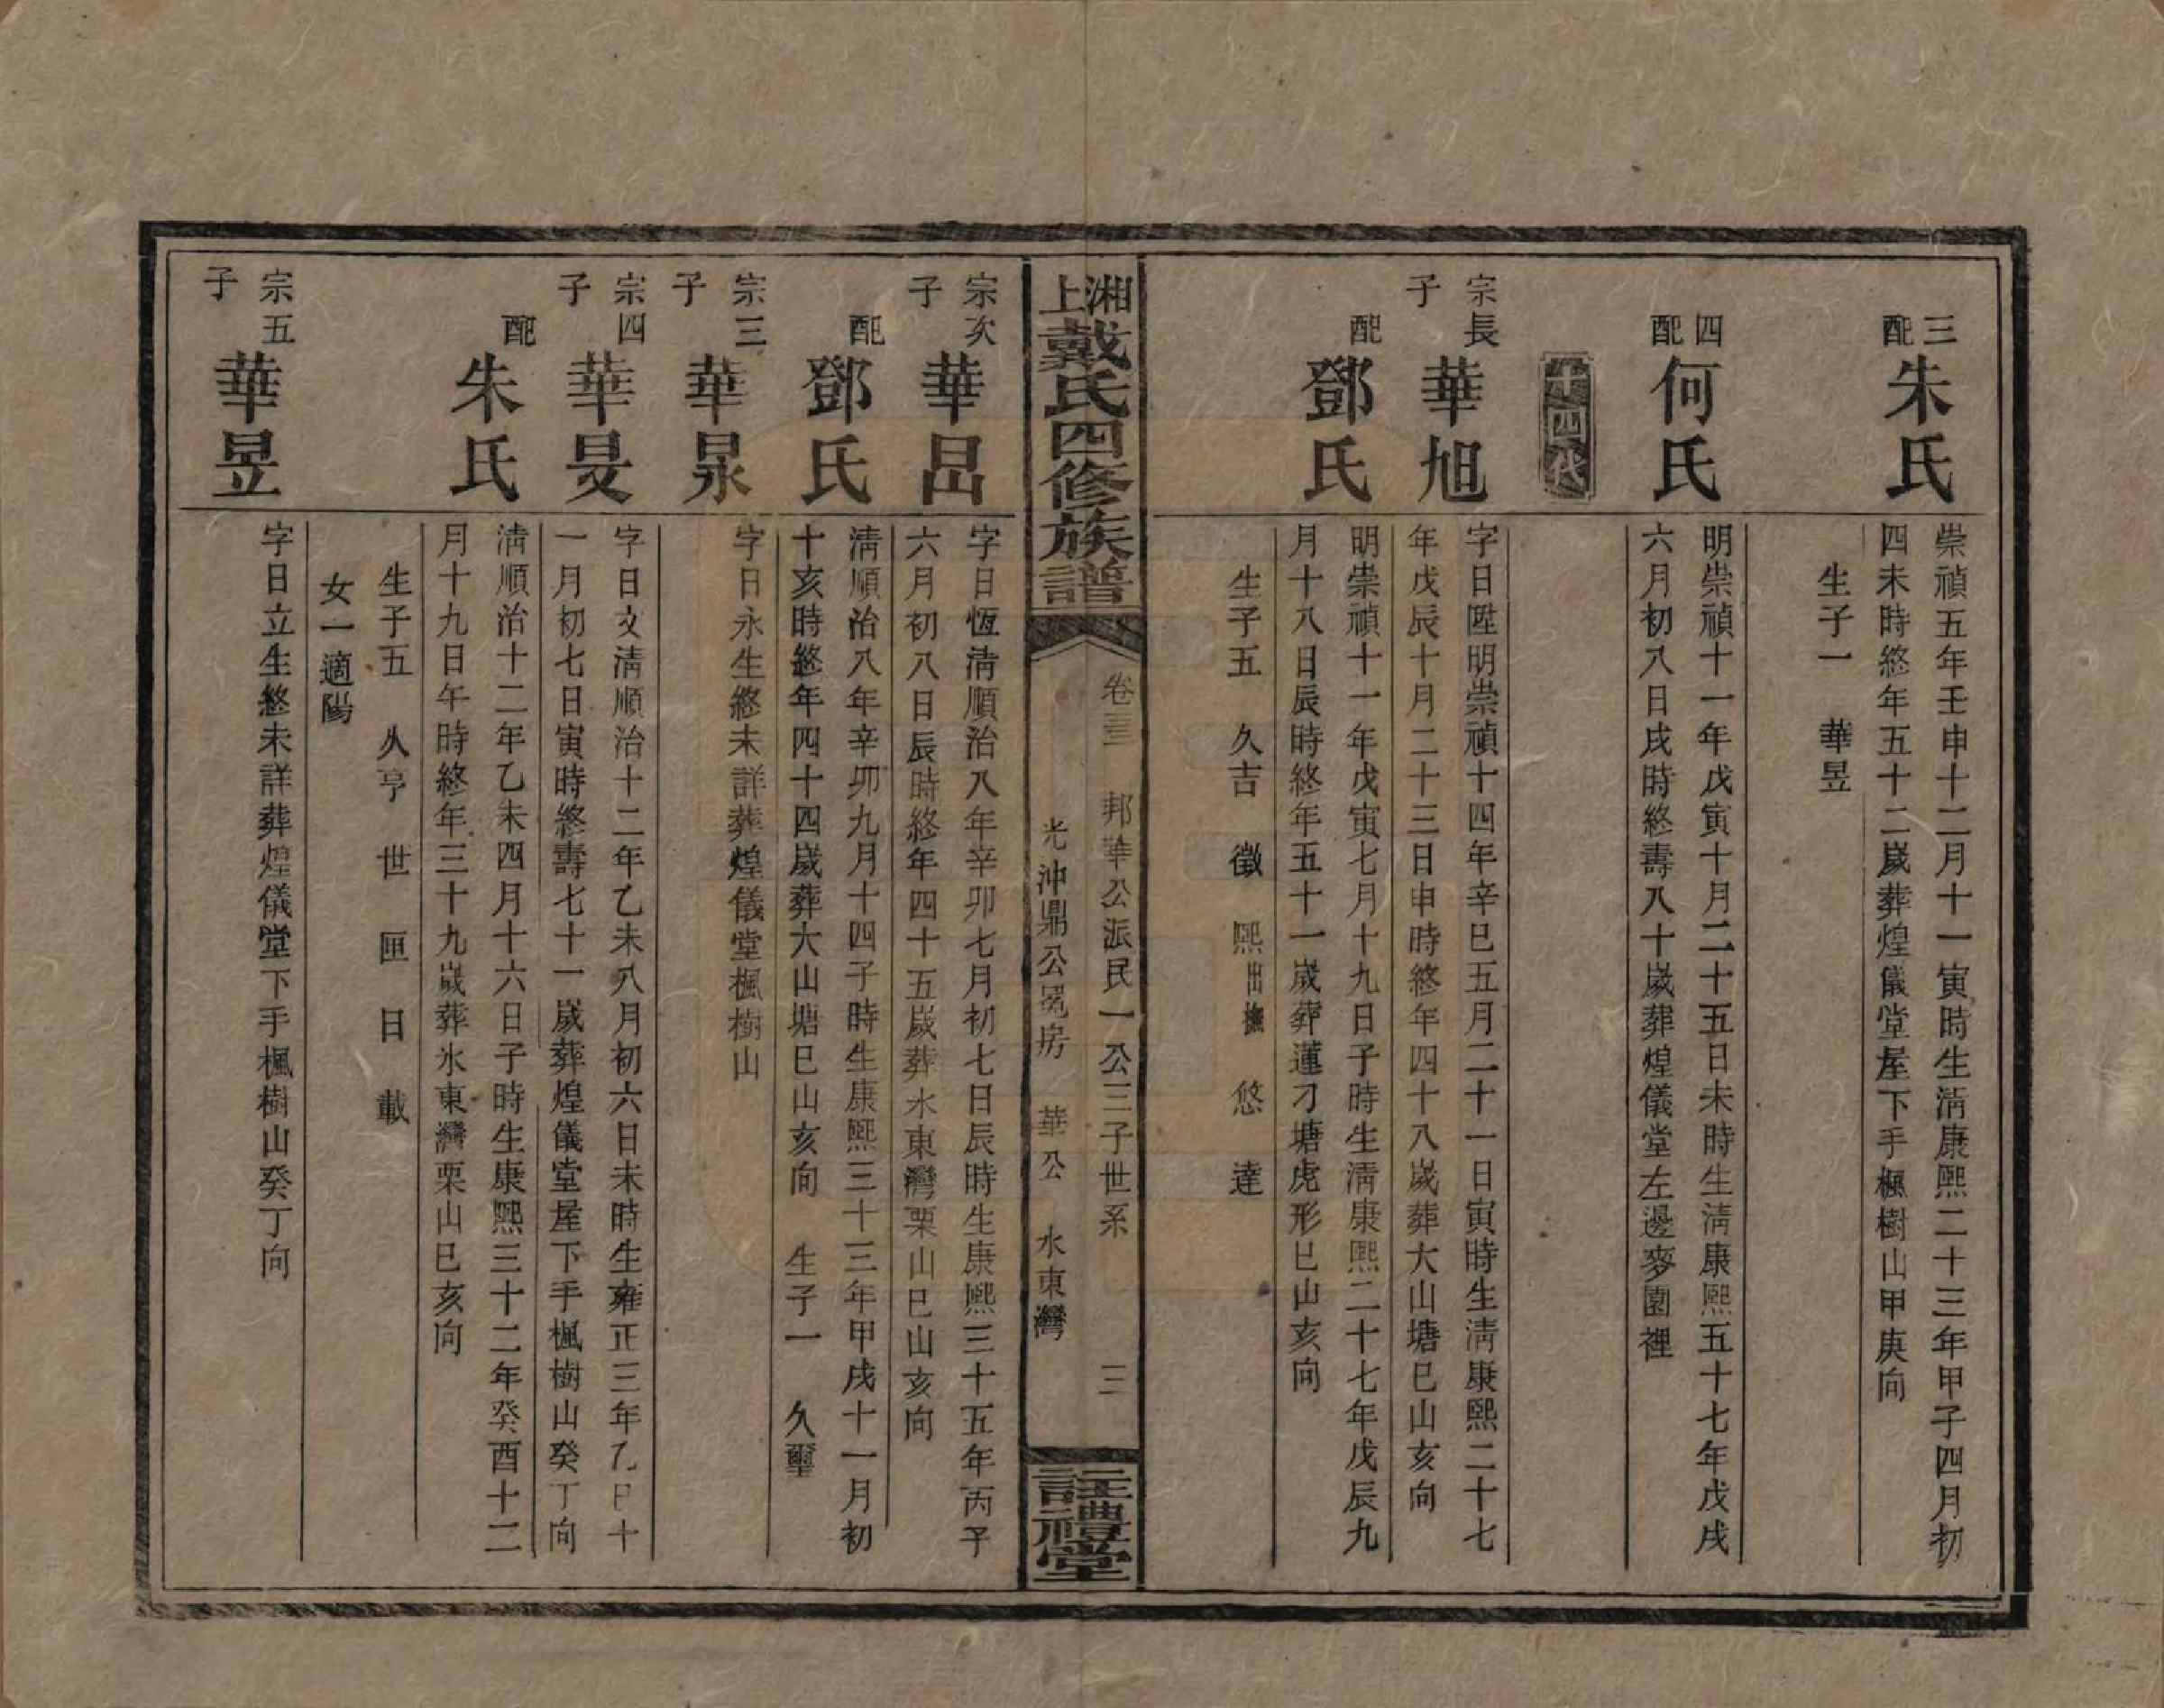 三配
朱氏
崇禎五年壬申十二月十一寅時生淸康熙二十三年甲子四月初
四未時終年五十二歲葬煌儀堂屋下手楓樹山甲庚向
生子一　華昱
四配
何氏
明崇禎十一年戊寅十月二十五日未時生淸康熙五十七年戊戌
六月初八日戌時終壽八十歲葬煌儀堂左邊麥園裡
十四代
宗長子
華旭
字日陞明崇禎十四年辛巳五月二十一日寅時生淸康熙二十七
年戊辰十月二十三日申時終年四十八歲葬大山塘巳山亥向
配
鄧氏
明崇禎十一年戊寅七月十九日子時生淸康熙二十七年戊辰九
月十八日辰時終年五十一歲葬蓮刁塘虎形巳山亥向
生子五　久吉　徵　熙出撫　悠　達
湘上戴氏四修族譜
卷三　邦華公派民一公三子世系　三
光沖鼎公冕房　華公　水東灣
註禮堂
宗次子
華昌
字日恆淸順治八年辛卯七月初七日辰時生康熙三十五年丙子
六月初八日辰時終年四十五歲葬水東灣栗山巳山亥向
配
鄧氏
淸順治八年辛卯九月十四子時生康熙三十三年甲戌十一月初
十亥時終年四十四歲葬大山塘巳山亥向　生子一　久璽
宗三子
華泉
字日永生終未詳葬煌儀堂楓樹山
宗四子
華旻
字日文淸順治十二年乙未八月初六日未時生雍正三年乙巳十
一月初七日寅時終壽七十一歲葬煌儀堂屋下手楓樹山癸丁向
配
朱氏
淸順治十二年乙未四月十六日子時生康熙三十二年癸酉十二
月十九日午時終年三十九歲葬水東灣栗山巳亥向
生子五　久亨　世　匣　日　載
女一適陽
宗五子
華昱
字日立生終未詳葬煌儀堂下手楓樹山癸丁向